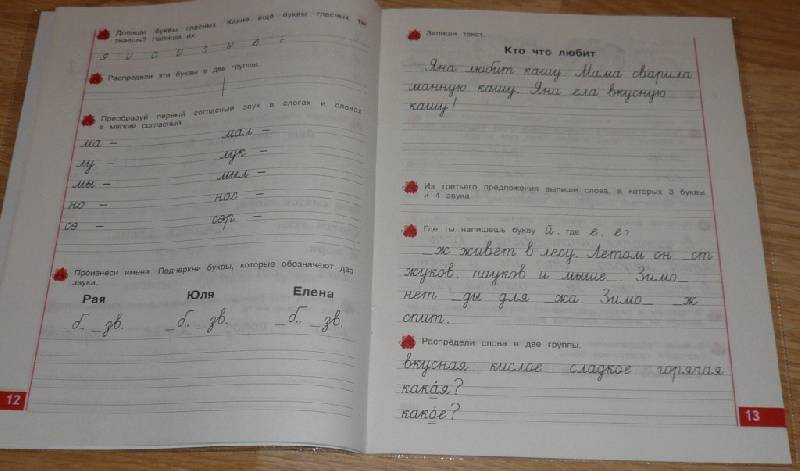 Допиши буквы гласных. Какие ещё буквы гласных ты
знаешь? Напиши их.
Распредели эти буквы в две группы.
Преобразуй первый согласный звук в слогах и словах
в мягкий согласный.
ма – мал –
лу – лук –
мы – мыл –
но – нос –
сэ – сэр –
Произнеси имена. Подчеркни буквы, которые обозначают два
звука.
Рая Юля Елена
_ б. _ зв. _ б. _ зв. _ б. _ зв.
12
Запиши текст.
Кто что любит
Яна любит кашу. Мама сварила
манную кашу. Яна ела вкусную
кашу!
Из третьего предложения выпиши слова, в которых 3 буквы
и 4 звука.
Где ты напишешь букву й, где е, ё?
_ж живёт в лесу. Летом он _ст
жуков, пауков и мыше_. Зимо_
нет _ды для _жа. Зимо_ _ж
спит.
Распредели слова в две группы.
вкусная кислое сладкое горячая
какая?
какое?
13